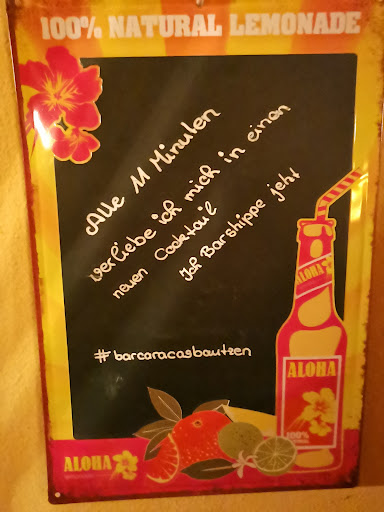 100% NATURAL LEMONADE
Alle 11 Minuten
verliebe ich mich in einen
neuen Cocktail
Ich Barshippe jetzt
#barcaracasbautzen
ALOHA
ALOHA
100%
ALOHA